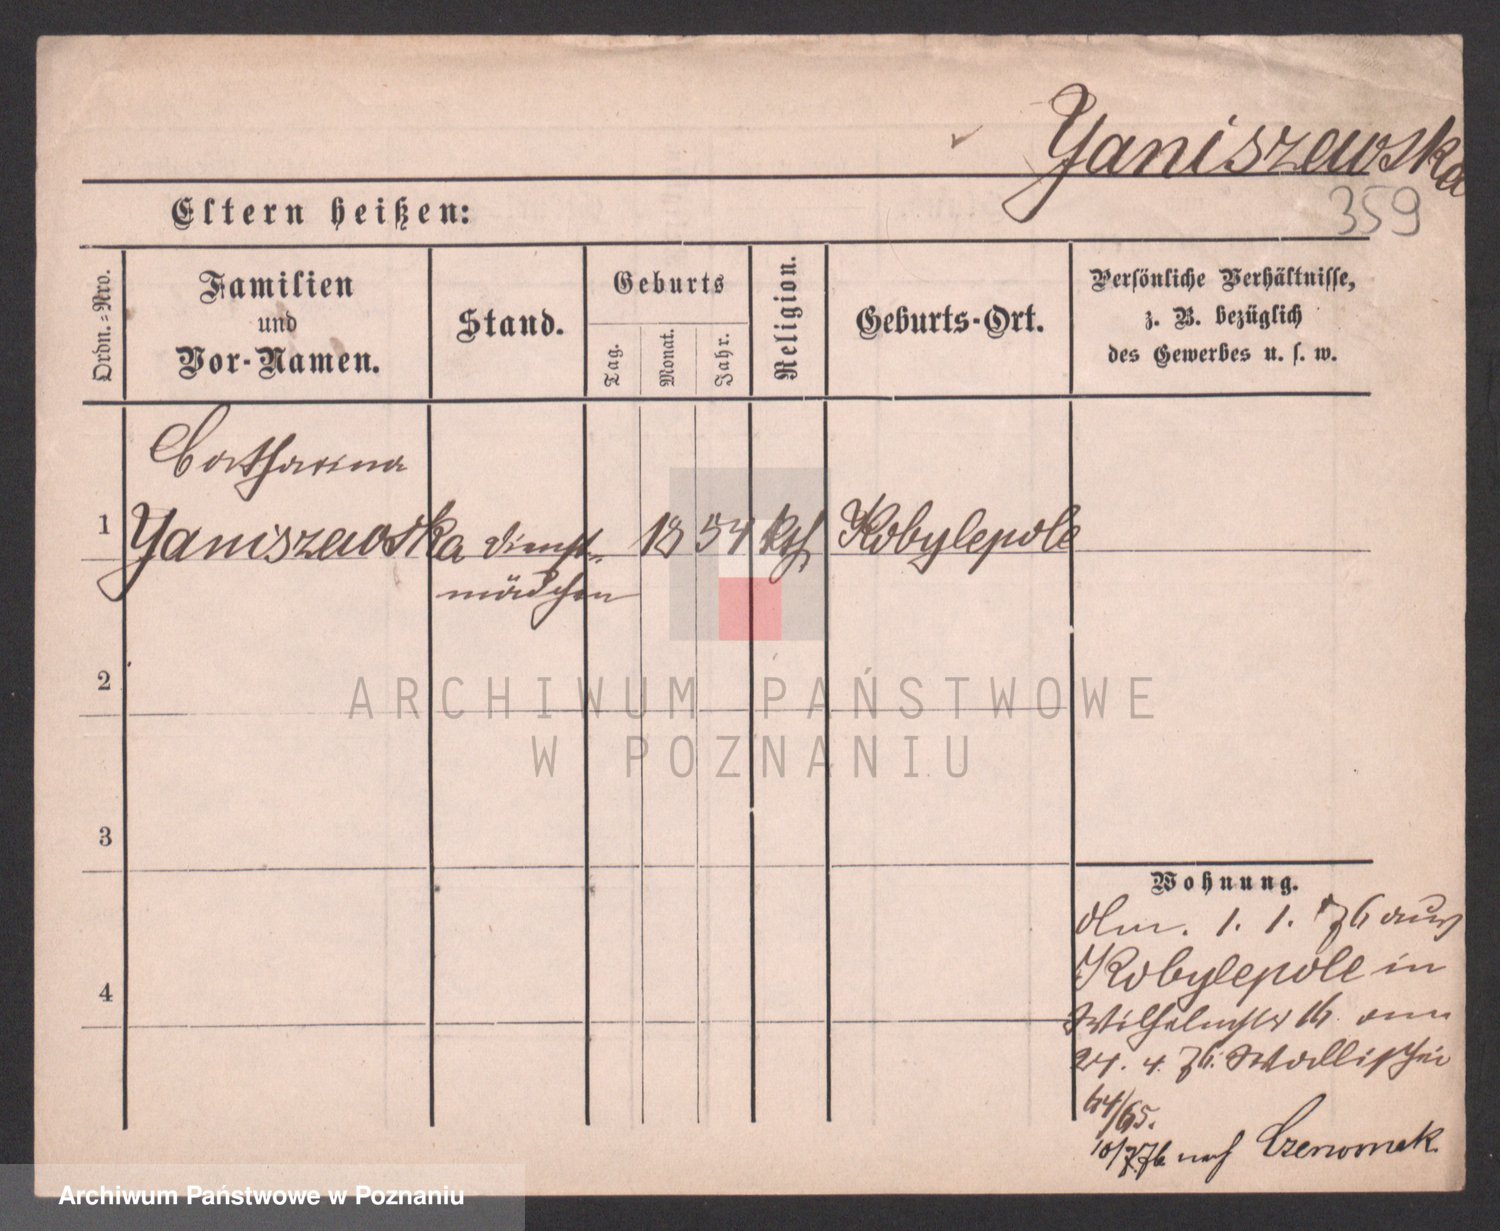 Yaniszewska
359
Eltern heißen:
Ordn.-Nro.
Familien
und
Vor-Namen.
Stand.
Geburts
Tag.
Monat.
Jahr.
Religion.
Geburts-Ort.
Persönliche Verhältnisse,
z. B. bezüglich
des Gewerbes u. s. w.
Catharina
1 Yaniszewska Dienst- 18 54 kth Kobylepole
mädchen
2
ARCHIWUM PAŃSTWOWE
W POZNANIU
3
Wohnung.
1. 1. 76 aus
Kobylepole in
4
Wilhelmstr 16. am
24. 4. 76. Wallischei
64/65.
10/7.76 nach Czerwonak
Archiwum Państwowe w Poznaniu